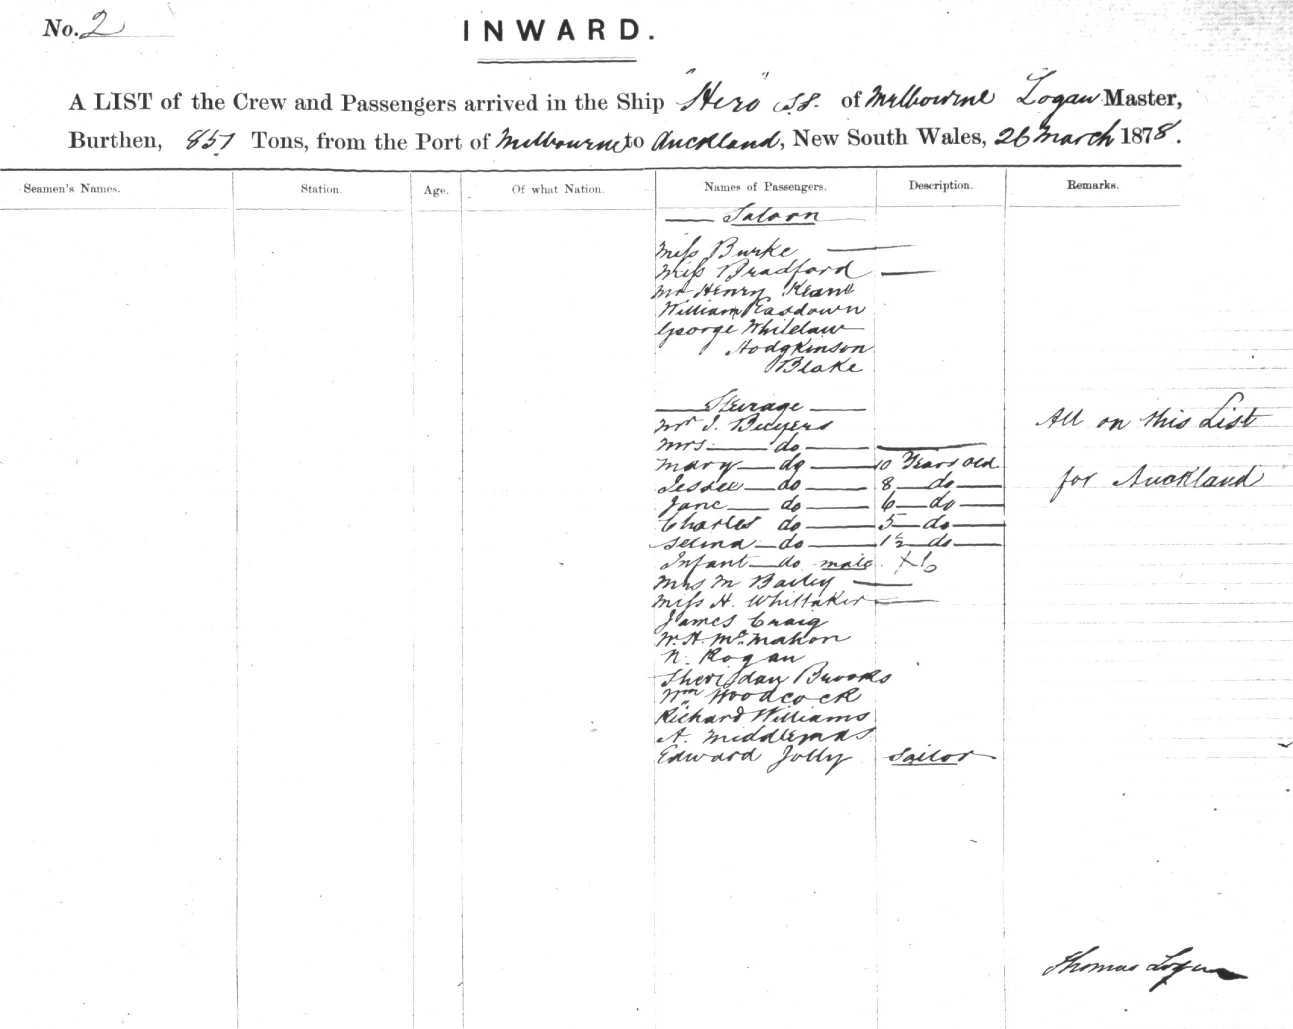 No. 2
INWARD.
A LIST of the Crew and Passengers arrived in the Ship "Hero" SS. of Melbourne Logan Master,
Burthen, 857 Tons, from the Port of Melbourne to Auckland, New South Wales, 26 March 1878.
Seamen's Names. Station. Age. Of what Nation. Names of Passengers. Description. Remarks.
Saloon
Miss Burke
Miss Bradford
Mr Henry
William Easdown
George Whitelaw
Hodgkinson
Blake
Steerage
Mr J. Buyers
Mrs do
Mary do 10 Years old
Jessee do 8 do
Jane do 6 do
Charles do 5 do
Selina do 1½ do
Infant do male
Mrs M Bailey
Miss H. Whittaker
James Craig
W. H. McMahon
N. Rogan
Sheridan Brooks
Wm Woodcock
Richard Williams
A. Middlemas
Edward Jolly Sailor
All on this List
for Auckland
Thomas Logan